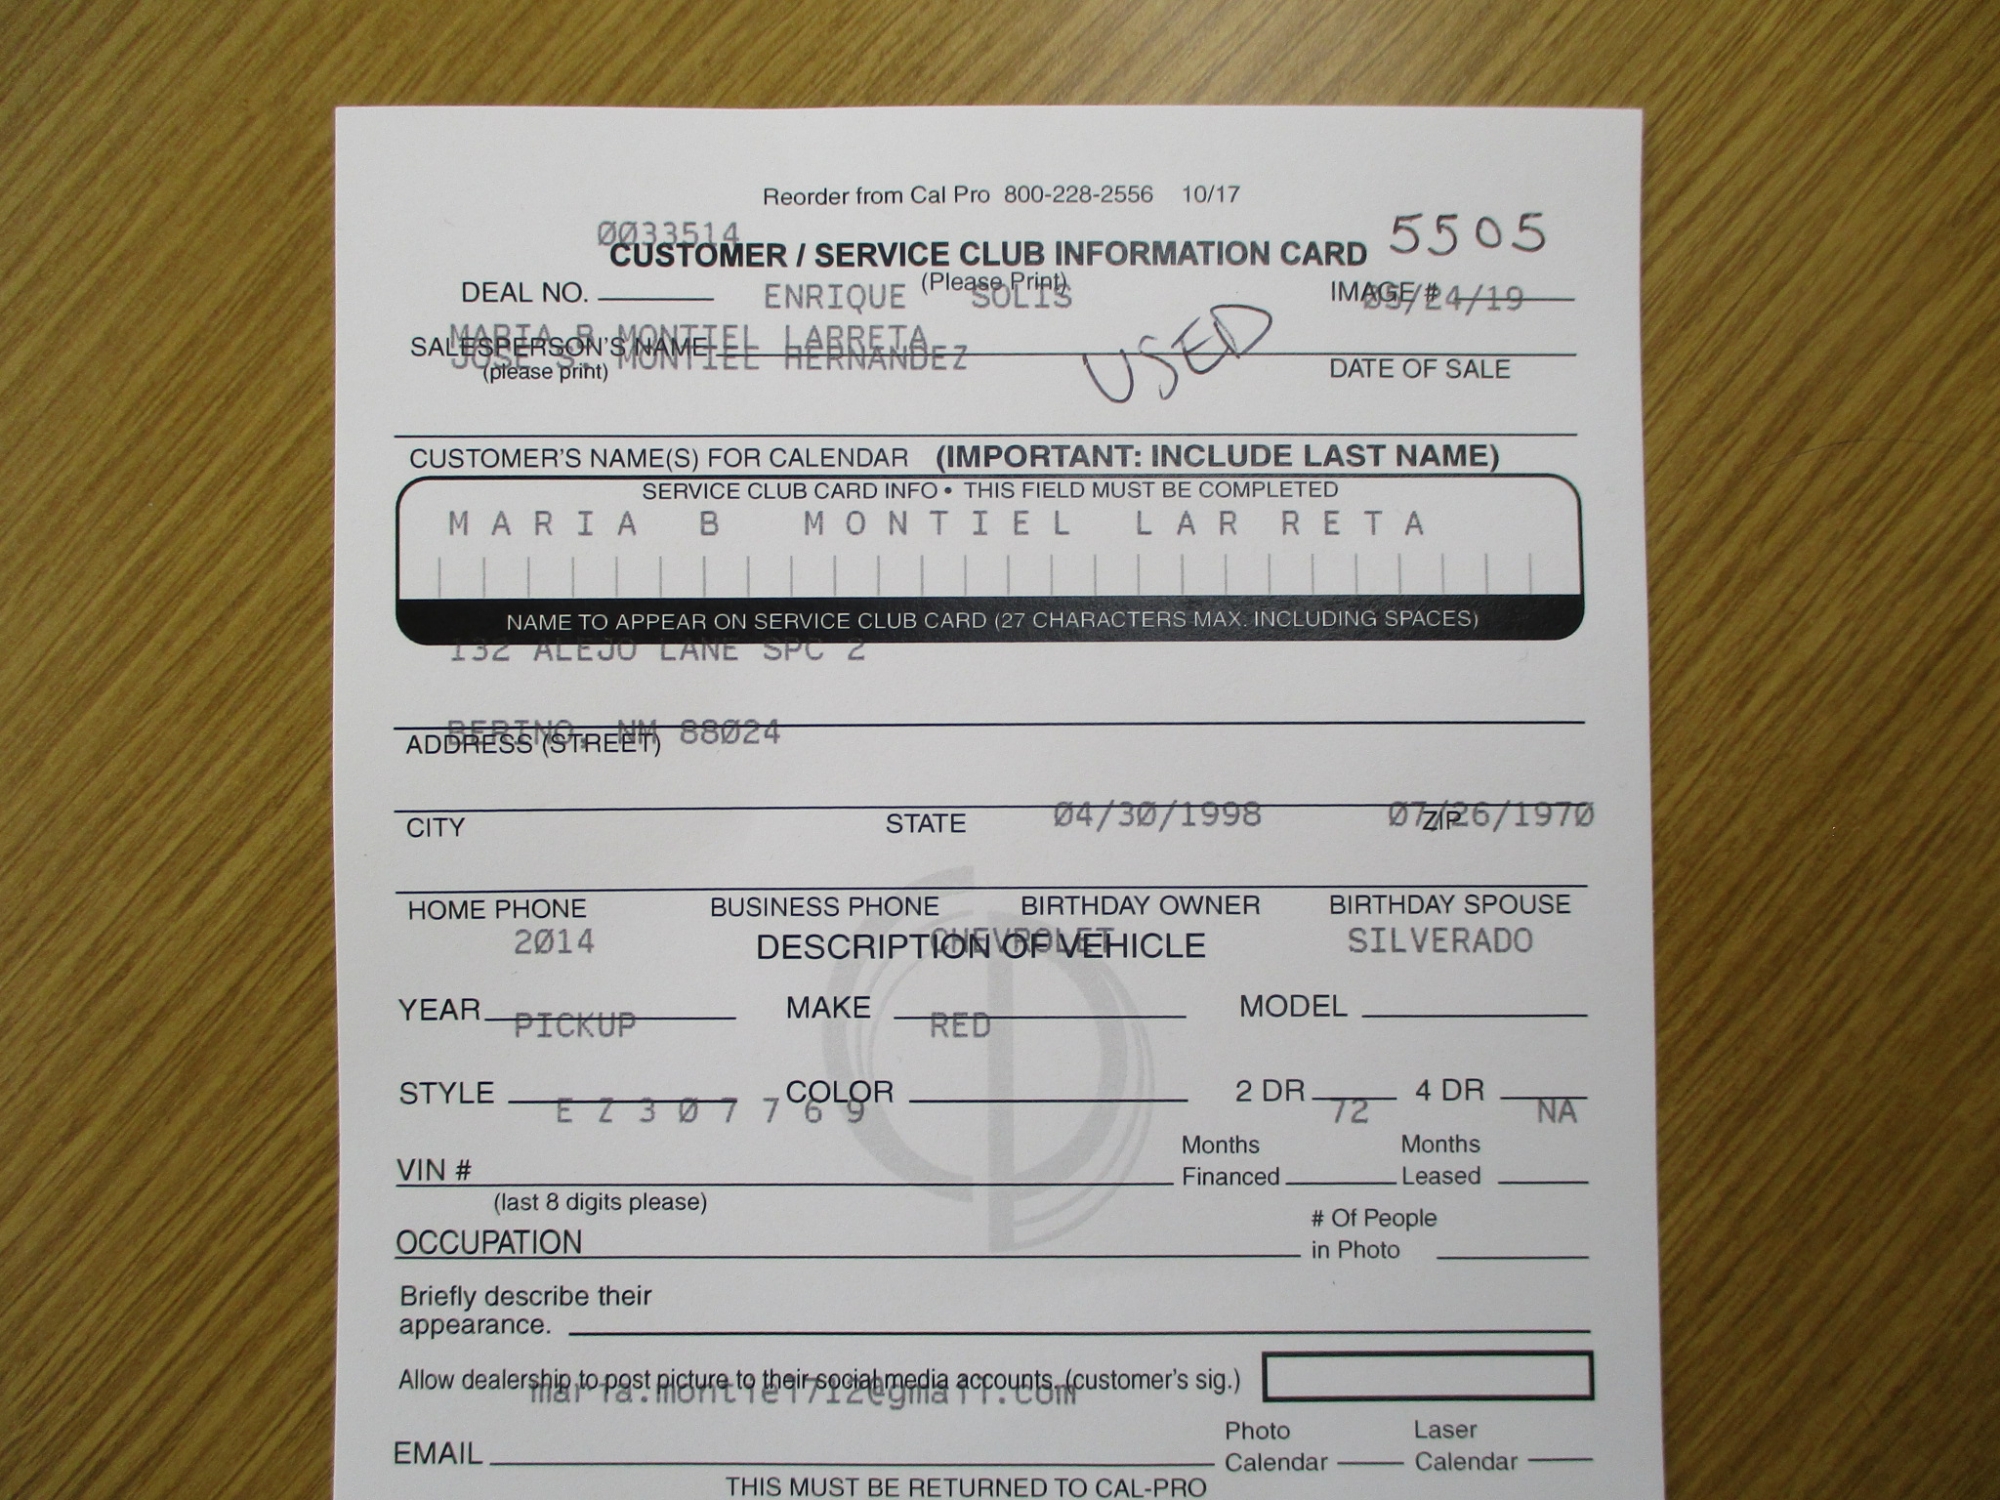 Reorder from Cal Pro 800-228-2556 10/17
0033514
CUSTOMER / SERVICE CLUB INFORMATION CARD 5505
(Please Print)
DEAL NO. ENRIQUE SOLIS IMAGE # 05/24/19
MARIA B MONTIEL LARRETA
SALESPERSON'S NAME USED
JOSE S. MONTIEL HERNANDEZ
(please print) DATE OF SALE
CUSTOMER'S NAME(S) FOR CALENDAR (IMPORTANT: INCLUDE LAST NAME)
SERVICE CLUB CARD INFO • THIS FIELD MUST BE COMPLETED
MARIA B MONTIEL LARRETA
NAME TO APPEAR ON SERVICE CLUB CARD (27 CHARACTERS MAX. INCLUDING SPACES)
132 ALEJO LANE SPC 2
BERINO, NM 88024
ADDRESS (STREET)
04/30/1998 07/26/1970
CITY STATE ZIP
HOME PHONE BUSINESS PHONE BIRTHDAY OWNER BIRTHDAY SPOUSE
2014 CHEVROLET SILVERADO
DESCRIPTION OF VEHICLE
YEAR MAKE MODEL
PICKUP RED
STYLE COLOR 2 DR 4 DR
EZ307769 72 NA
VIN # Months Financed Months Leased
(last 8 digits please)
OCCUPATION # Of People in Photo
Briefly describe their
appearance.
Allow dealership to post picture to their social media accounts. (customer's sig.)
maria.montiel712@gmail.com
EMAIL Photo Calendar Laser Calendar
THIS MUST BE RETURNED TO CAL-PRO